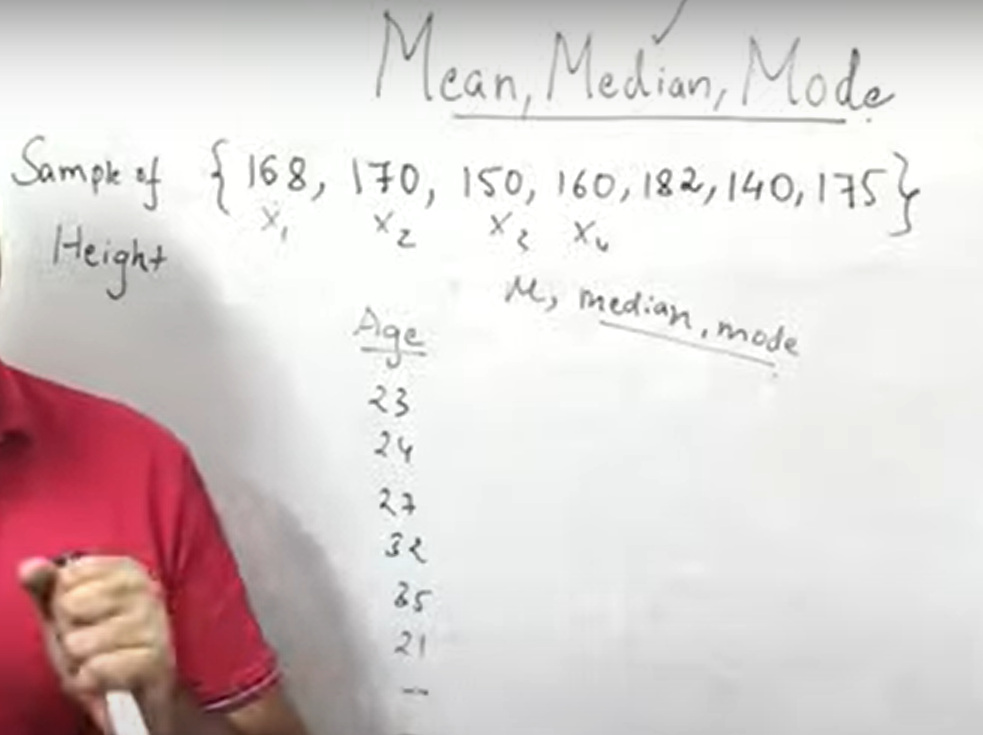 Mean, Median, Mode
Sample of {168, 170, 150, 160, 182, 140, 175}
x₁ x₂ x₃ x₄
Height
μ, median, mode
Age
23
24
27
32
35
21
--